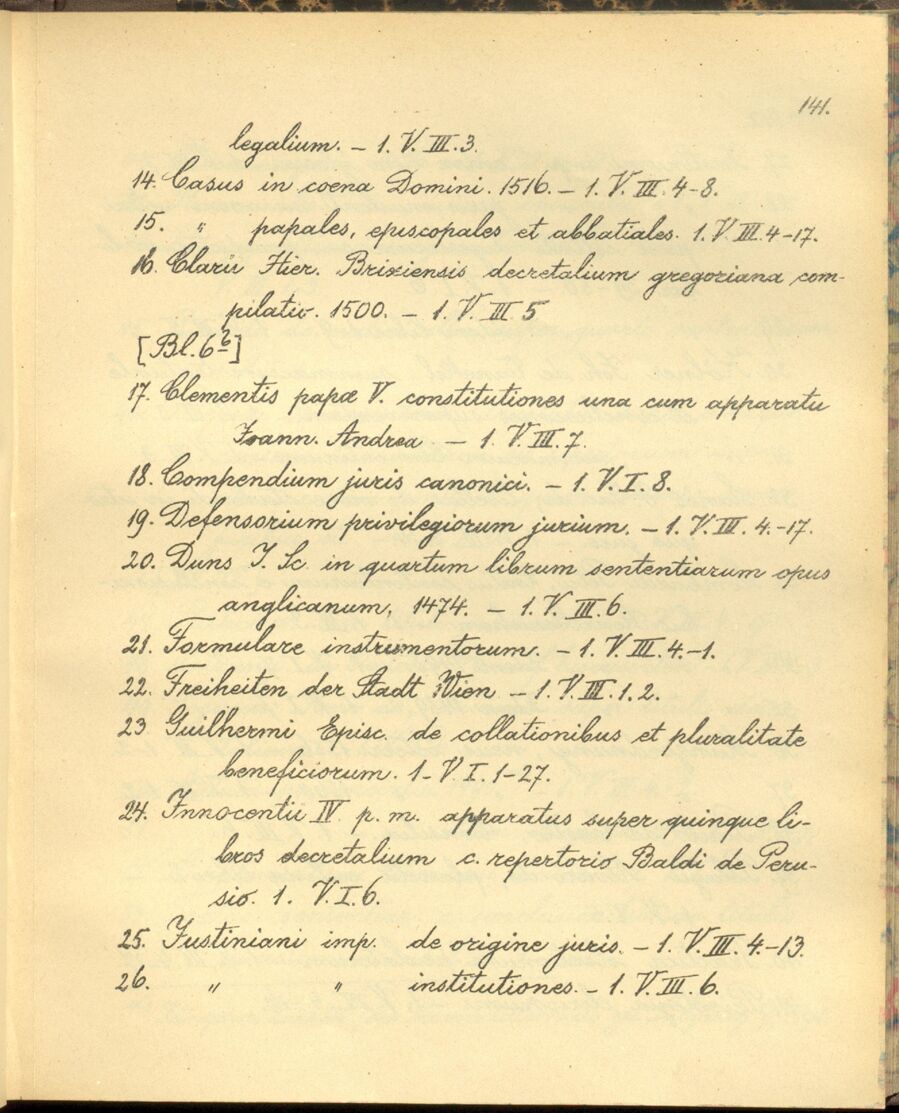 141.
legalium. – 1. V. III. 3.
14. Casus in coena Domini. 1516. – 1. V. III. 4-8.
15. " papales, episcopales et abbatiales. 1. V. III. 4-17.
16. Clarii Hier. Brixiensis decretalium gregoriana com-
pilatio. 1500. – 1. V. III. 5
[Bl. 6b]
17. Clementis papæ V. constitutiones una cum apparatu
Joann. Andrea – 1. V. III. 7.
18. Compendium juris canonici. – 1. V. I. 8.
19. Defensorium privilegiorum jurium. – 1. V. III. 4.-17.
20. Duns J. Sc. in quartum librum sententiarum opus
anglicanum, 1474. – 1. V. III. 6.
21. Formulare instrumentorum. – 1. V. III. 4.-1.
22. Freiheiten der Stadt Wien – 1. V. III. 1. 2.
23 Guilhermi Episc. de collationibus et pluralitate
beneficiorum. 1- V. I. 1-27.
24. Innocentii IV p. m. apparatus super quinque li-
bros decretalium c. repertorio Baldi de Peru-
sio. 1. V. I. 6.
25. Justiniani imp. de origine juris. – 1. V. III. 4.-13.
26. " " institutiones. – 1. V. III. 6.